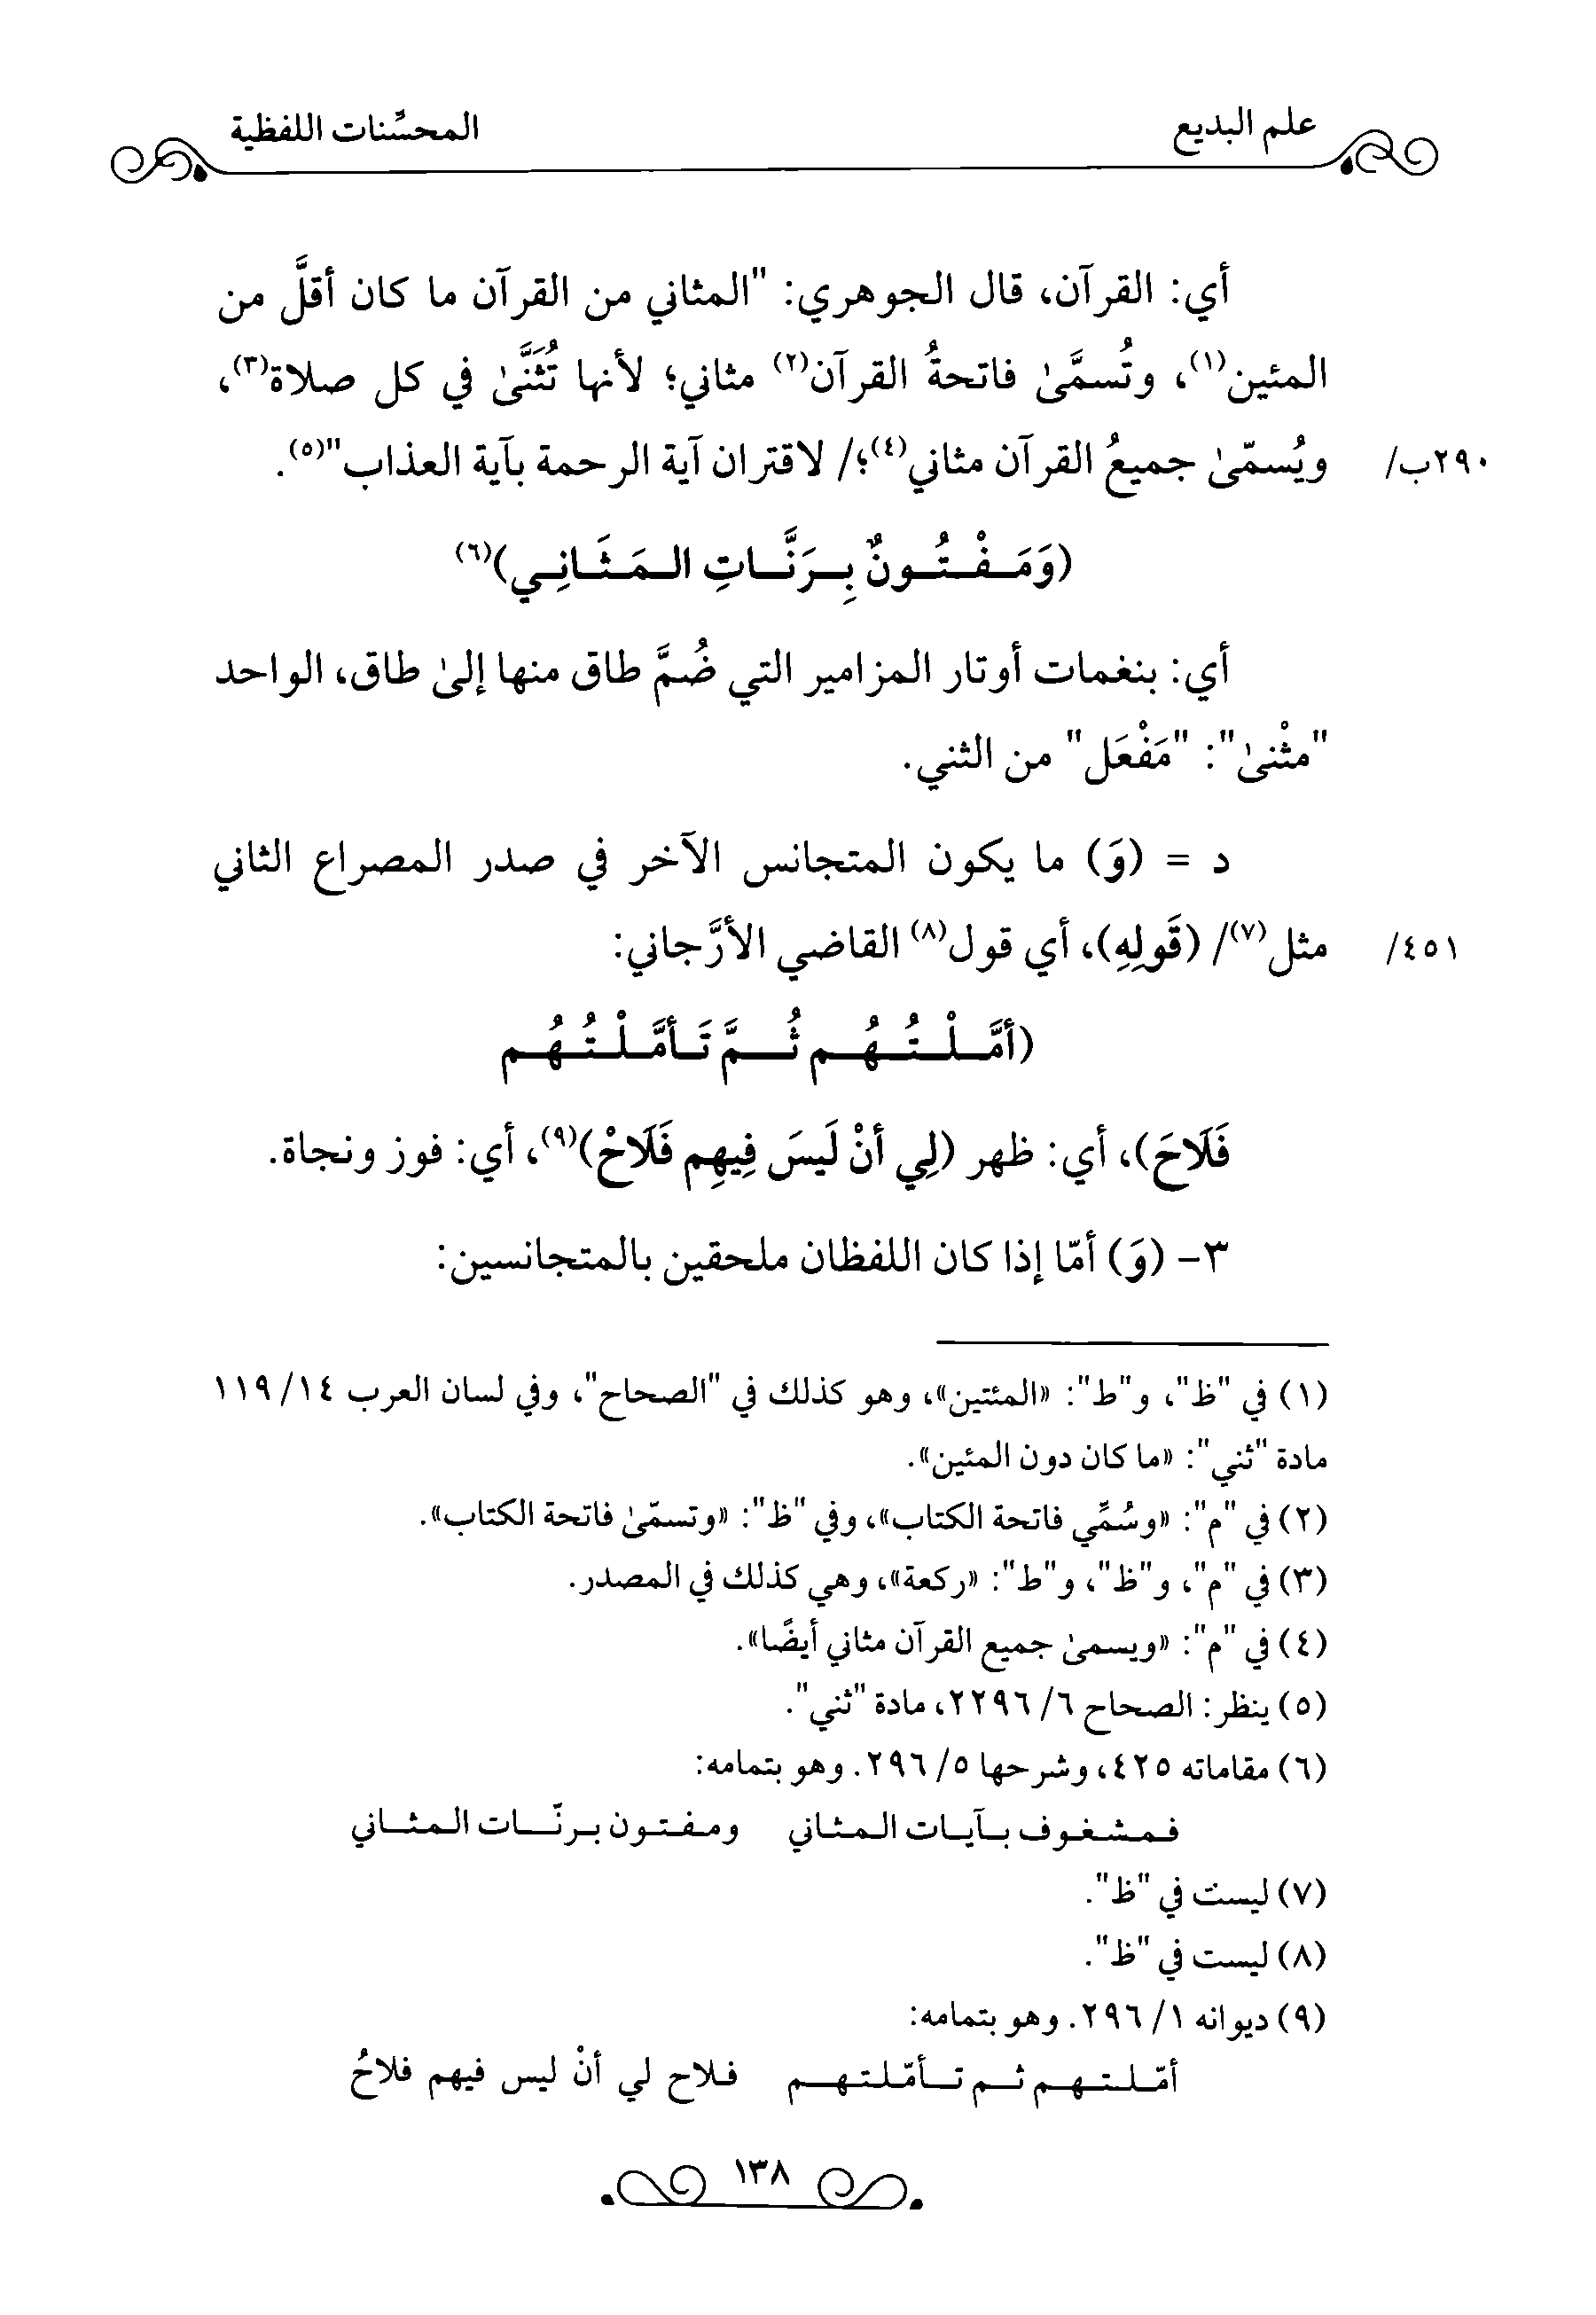 علم البديع
المحسِّنات اللفظية
أي: القرآن، قال الجوهري: "المثاني من القرآن ما كان أقلَّ من
المئين(١)، وتُسمَّىٰ فاتحةُ القرآن(٢) مثاني؛ لأنها تُثَنَّىٰ في كل صلاة(٣)،
٢٩٠ب/ ويُسمّىٰ جميعُ القرآن مثاني(٤)؛/ لاقتران آية الرحمة بآية العذاب"(٥).
(وَمَـفْـتُـونٌ بِـرَنَّـاتِ الـمَـثَـانِـي)(٦)
أي: بنغمات أوتار المزامير التي ضُمَّ طاق منها إلىٰ طاق، الواحد
"مثْنىٰ": "مَفْعَل" من الثني.
د = (وَ) ما يكون المتجانس الآخر في صدر المصراع الثاني
٤٥١/ مثل(٧)/ (قَولِهِ)، أي قول(٨) القاضي الأرَّجاني:
(أمَّـلْـتُـهُـم ثُـمَّ تَـأمَّـلْـتُـهُـم
فَلَاحَ)، أي: ظهر (لِي أنْ لَيسَ فِيهِم فَلَاحْ)(٩)، أي: فوز ونجاة.
٣- (وَ) أمّا إذا كان اللفظان ملحقين بالمتجانسين:
(١) في "ظ"، و"ط": «المئتين»، وهو كذلك في "الصحاح"، وفي لسان العرب ١٤/ ١١٩
مادة "ثني": «ما كان دون المئين».
(٢) في "م": «وسُمِّي فاتحة الكتاب»، وفي "ظ": «وتسمّىٰ فاتحة الكتاب».
(٣) في "م"، و"ظ"، و"ط": «ركعة»، وهي كذلك في المصدر.
(٤) في "م": «ويسمىٰ جميع القرآن مثاني أيضًا».
(٥) ينظر: الصحاح ٦/ ٢٢٩٦، مادة "ثني".
(٦) مقاماته ٤٢٥، وشرحها ٥/ ٢٩٦. وهو بتمامه:
فـمـشـغـوف بـآيـات الـمـثـاني ومـفـتـون بـرنّـات الـمـثـاني
(٧) ليست في "ظ".
(٨) ليست في "ظ".
(٩) ديوانه ١/ ٢٩٦. وهو بتمامه:
أمّـلـتـهـم ثـم تـأمّـلـتـهـم فـلاح لي أنْ ليس فيهم فلاحُ
١٣٨